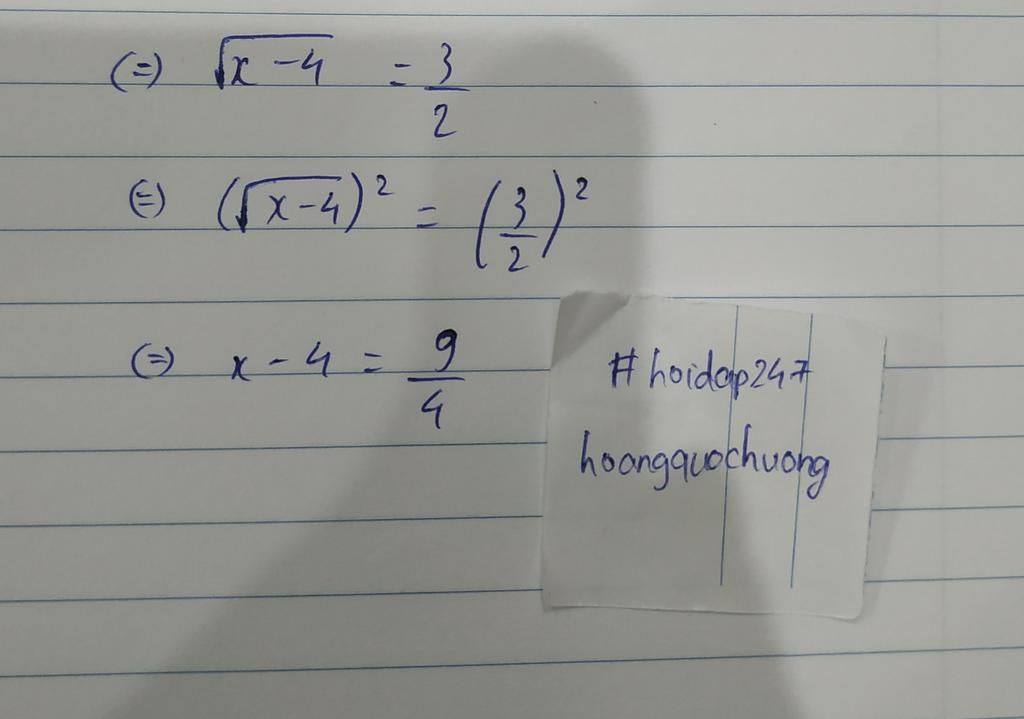 (=) √(x-4) = 3/2
(=) (√(x-4))² = (3/2)²
(=) x - 4 = 9/4
#hoidap247
hoangquochuong